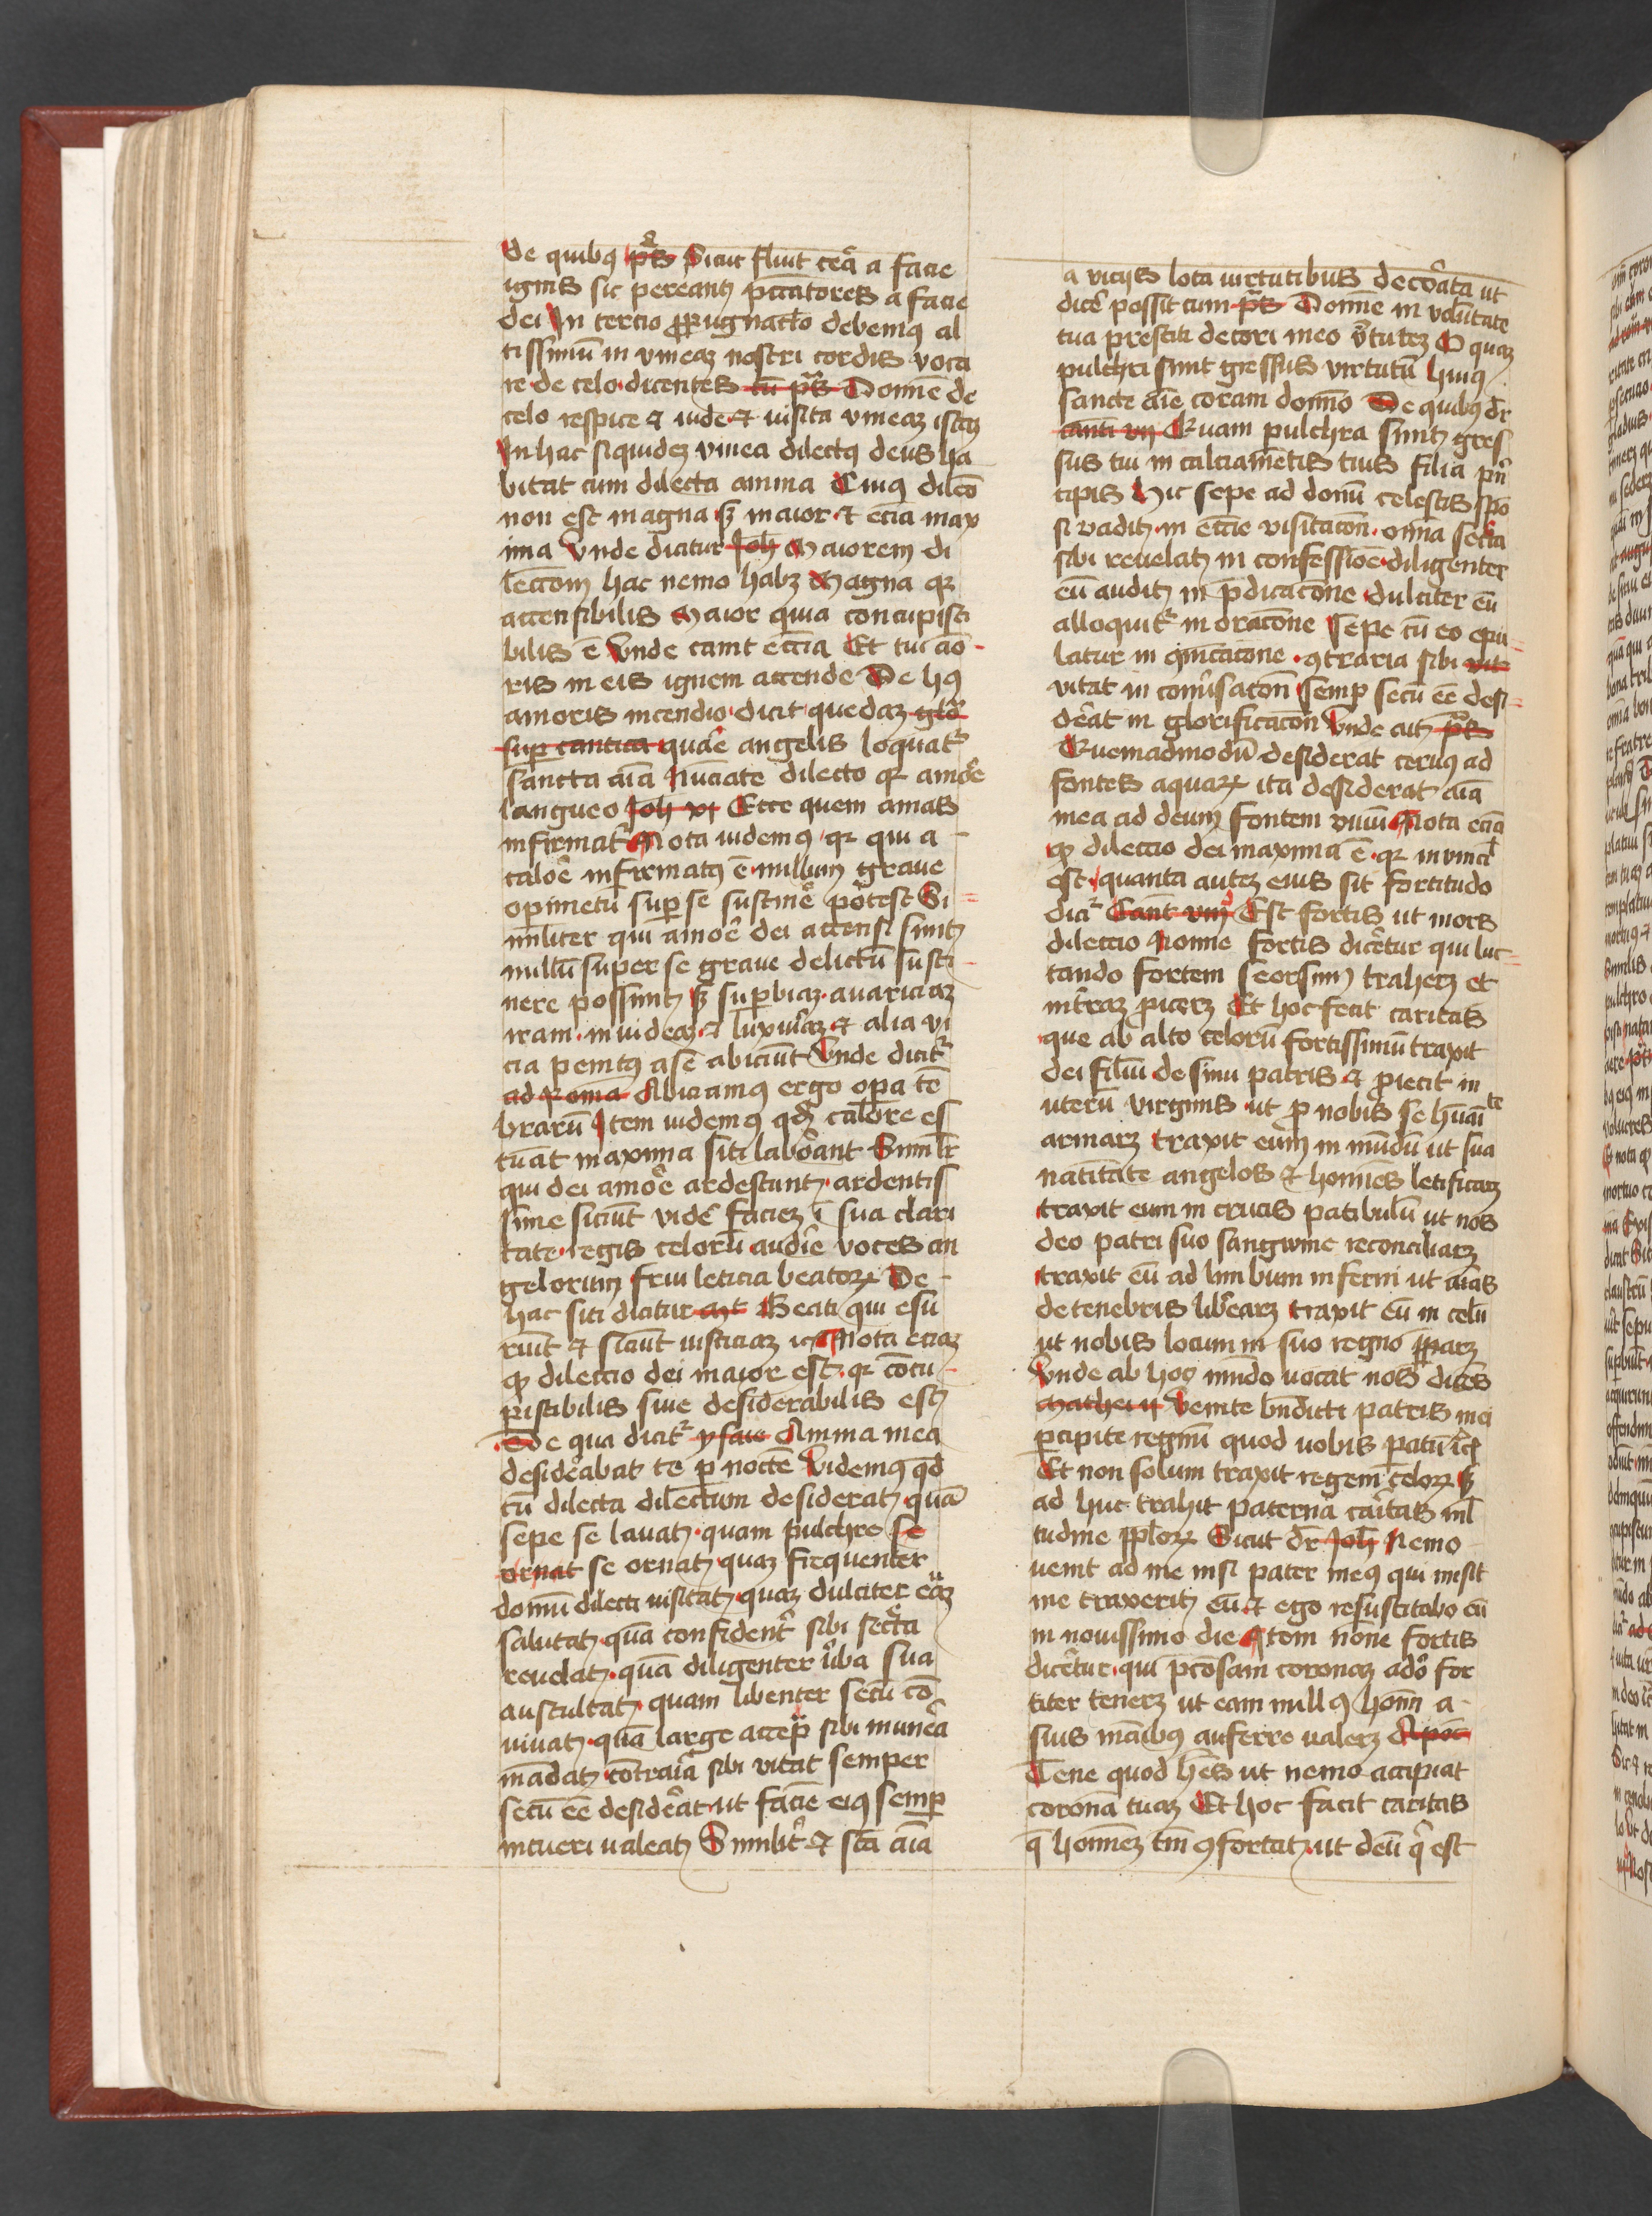 de quibꝯ p̄s Sicut fluit cera a facie
ignis sic pereant peccatores a facie
dei In tercio ꝓpugnac̄lo debemꝯ al
tissimū in vineaz nostri cordis voca
re de celo dicentes cū p̄s Domine de
celo respice ⁊ uide ⁊ uisita vineaz istaz
In hac siquidez vinea dilectꝯ deus ha
bitat cum dilecta anima Cuiꝯ dilc̄o
non est magna sꝫ maior ⁊ ecia max
ima Unde dicitur Joh Maiorem di
lecc̄om hac nemo habꝫ Magna qꝛ
accensibilis Maior quia concupisci
bilis ē Unde canit ecc̄ia Et tui amo
ris in eis ignem accende De hꝯ
amoris incendio dicit quedaz glo
super cantica quare angelis loquat᷑
sancta aīa Nūciate dilecto qꝛ amore
langueo Joh xi Ecce quem amas
infirmat᷑ Nota uidemꝯ qꝛ qui a
calore infirmatꝯ ē nullum graue
opimetū super se sustinē potest Si
militer qui amore dei accensi sunt
nullū super se graue delictū susti
nere possunt sꝫ superbiaz auariciaz
iram inuideaz ⁊ luxuriaz ⁊ alia vi
cia penitꝯ a se abiciūt Unde dicit᷑
ad Roma Abiciamꝯ ergo opa te
brarū Item uidemꝯ qd calore es
tuāt maxima siti laborant Similr
qui dei amore ardescunt ardentis
sime siciūt videre faciez ī sua clari
tate regis celorū audire voces an
gelorum frui leticia beatorꝝ De
hac siti dicitur mt Beati qui esu
riūt ⁊ siciūt iusticiaz Nota eciaz
ꝙ dileccio dei maior est qꝛ cōcu
piscibilis siue desiderabilis est
De qua dicit᷑ ysaie Anima mea
desiderabat te ꝑ noctē Videmꝯ qd
cū dilecta dilectum desiderat quā
sepe se lauat quam pulchre se
ornat se ornat quaz frequenter
domū dilecti uisitat quaz dulciter eaz
salutat quā confident᷑ sibi secreta
reuelat quā diligenter verba sua
auscultat quam libenter secū cō
uiuat quā large accepta sibi munera
mādat cōtraria sibi vitat semper
secū eē desiderat ut faciē eiꝯ semꝑ
intueri ualeat Similit᷑ ⁊ scā aīa
a vicijs lota uirtutibus decorata ut
dicere possit cum p̄s Domine in volūtate
tua prestiti decori meo v᷑tutez O quaz
pulchri sunt gressus virtutū huiꝯ
sancte aīe coram domīno De quibꝯ dr̄
canti vij Quam pulchra sunt gres
sus tui in calciamētis tuis filia prin
cipis Hic sepe ad domū celestis spō
si vadit in ecc̄ie visitacōn omnia secreta
sibi reuelat in confessiōe diligenter
eū audit in p̄dicacōne dulciter eū
alloquit᷑ in oracōne sepe cū eo epu
latur in ꝯmicacōne ꝯtraria sibi vit
vitat in conuersacōn semꝑ secū eē desi
derat in glorificacōn Unde ait p̄s
Quemadmodū desiderat ceruꝯ ad
fontes aquarꝝ ita desiderat aīa
mea ad deum fontem viuū Nota eciā
ꝙ dileccio dei maxima ē qꝛ inuinci
est quanta autez eius sit fortitudo
dicit᷑ Cant viij Est fortis ut mors
dileccio Nonne fortis diceretur qui luc
tando fortem seorsim traherꝫ et
in terraz ꝓicerꝫ Et hoc fecit caritas
que ab alto celorū fortissimū traxit
dei filiū de sinu patris ⁊ ꝓiecit in
uterū virginis ut ꝓ nobis se hūaite
armarꝫ traxit eum in mūdū ut sua
natitate angelos ⁊ homines letificarꝫ
traxit eum in crucis patibulū ut nos
deo patri suo sangwine reconciliarꝫ
traxit eū ad limbum inferni ut aīas
de tenebris liberarꝫ traxit eū in celū
ut nobis locum in suo regno ꝑpararꝫ
Unde ab hoc mūdo uocat nos dices
Mathei ij Venite bn̄dicti patris mei
ꝑcipite regnū quod uobis paratū
Et non solum traxit regem celorꝝ sꝫ
ad huc trahit paterna caritas ml
tudine pplorꝝ Sicut dr̄ Joh Nemo
uenit ad me nisi pater meꝯ qui misit
me traxerit eū ⁊ ego resuscitabo eū
in nouissimo die Item none fortis
diceretur qui p̄cosam coronaz adeo for
titer tenerꝫ ut eam nullꝯ homin a
suis māibꝯ auferre ualerꝫ Apoc
Tene quod hēs ut nemo accipiat
coronā tuaz Et hoc facit caritas
q̄ hominez tm̄ ꝯfortat ut deū q̄ est